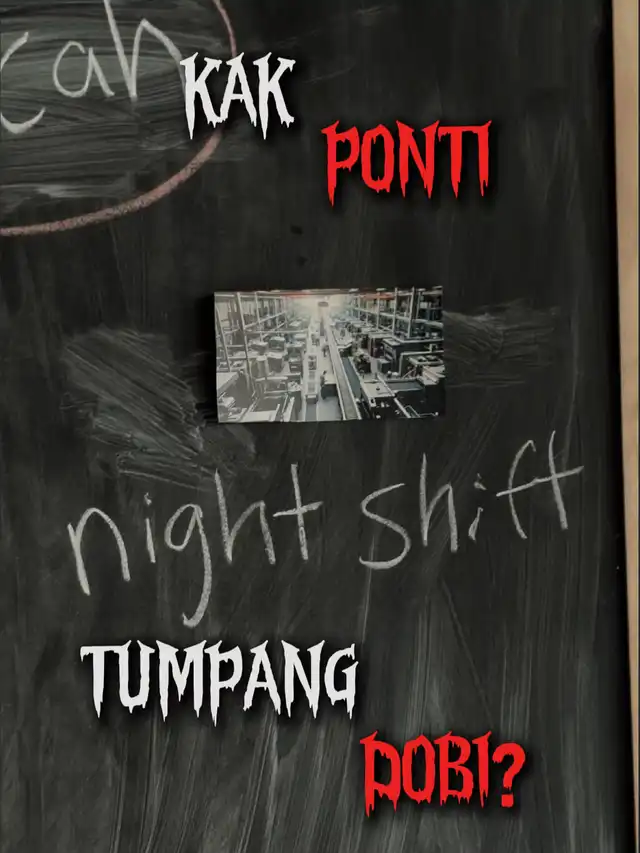 cah
KAK
PONTI
night shift
TUMPANG
DOBI?